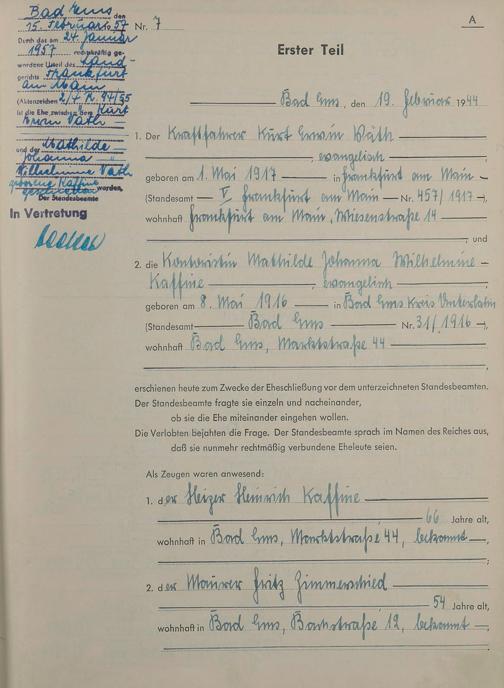 Bad Ems den
15. Februar 1957
Durch das am 24. Januar
1957 rechtskräftig ge-
wordene Urteil des Land-
gerichts Frankfurt
am Main
(Aktenzeichen 2/7 R. 97/55
ist die Ehe zwischen dem Kurt
Erwin Väth
und der Mathilde
Johanna
Wilhelmine Väth
geborene Kaffine
geschieden worden.
Der Standesbeamte
In Vertretung
Nr. 7
A
Erster Teil
Bad Ems, den 19. Februar 1944
1. Der Kraftfahrer Kurt Erwin Väth
, evangelisch,
geboren am 1. Mai 1917 in Frankfurt am Main
(Standesamt V Frankfurt am Main Nr. 457/1917),
wohnhaft Frankfurt am Main, Wiesenstraße 14
, und
2. die Kontoristin Mathilde Johanna Wilhelmine
Kaffine, evangelisch,
geboren am 8. Mai 1916 in Bad Ems Kreis Unterlahn
(Standesamt Bad Ems Nr. 31/1916),
wohnhaft Bad Ems, Marktstraße 44
erschienen heute zum Zwecke der Eheschließung vor dem unterzeichneten Standesbeamten.
Der Standesbeamte fragte sie einzeln und nacheinander,
ob sie die Ehe miteinander eingehen wollen.
Die Verlobten bejahten die Frage. Der Standesbeamte sprach im Namen des Reiches aus,
daß sie nunmehr rechtmäßig verbundene Eheleute seien.
Als Zeugen waren anwesend:
1. der Heizer Heinrich Kaffine
66 Jahre alt,
wohnhaft in Bad Ems, Marktstraße 44, bekannt,
;
2. der Maurer Fritz Zimmerschied
54 Jahre alt,
wohnhaft in Bad Ems, Bachstraße 12, bekannt,